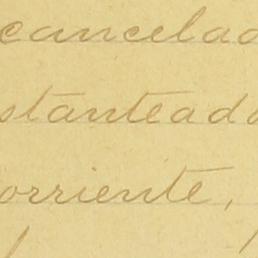 cancelad
stanteado
orriente,